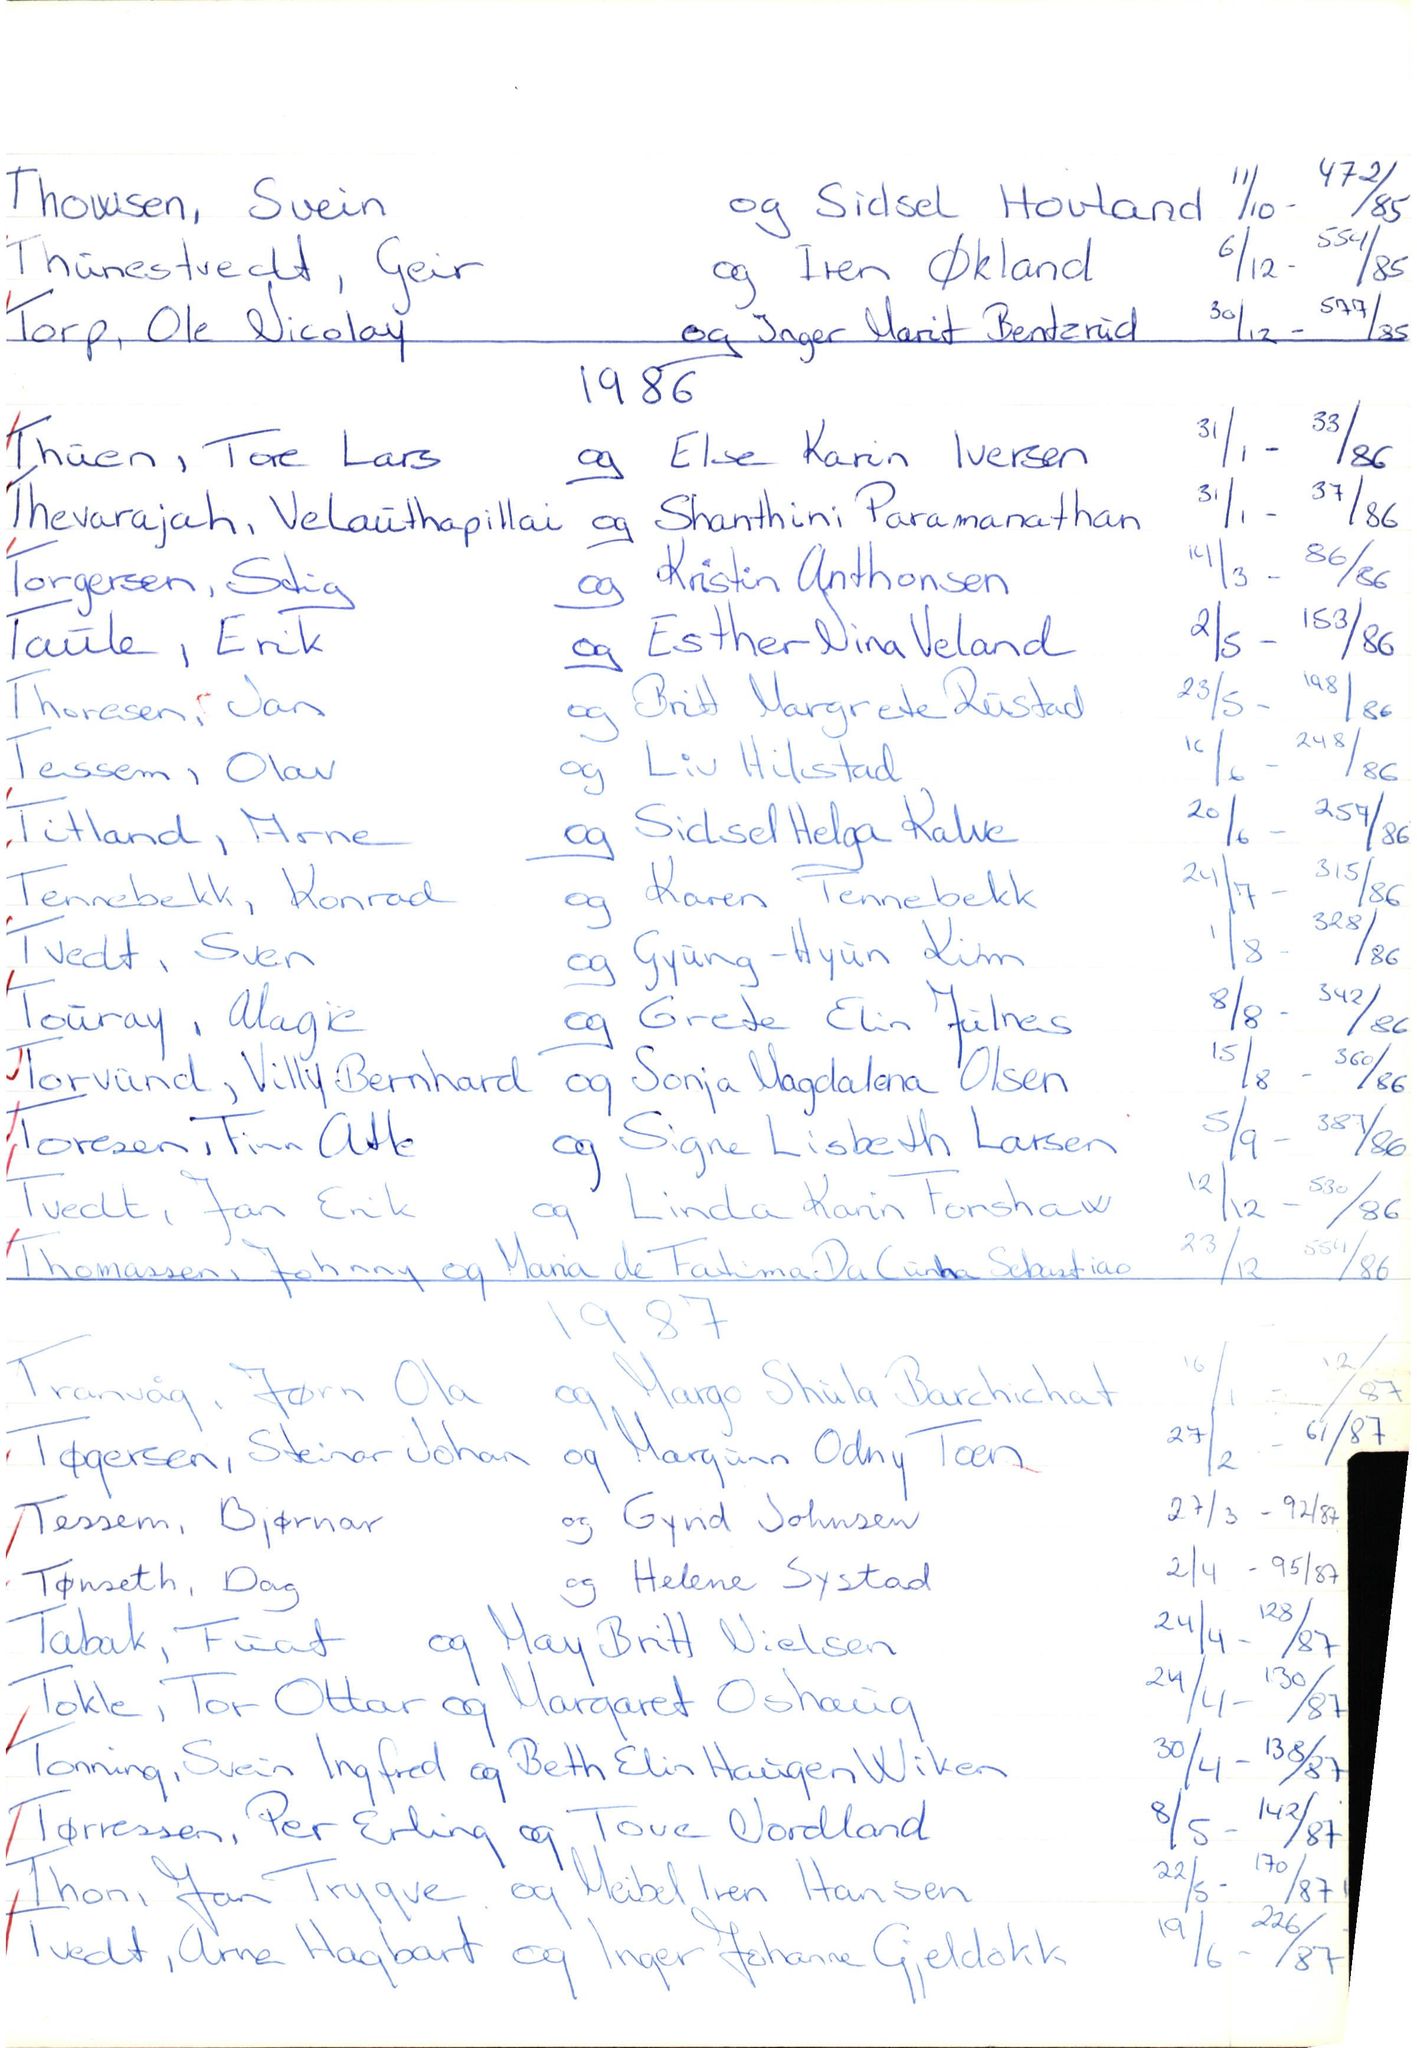 Thowsen, Svein og Sidsel Hovland 11/10 - 472/85
Thunestvedt, Geir og Iren Økland 6/12 - 554/85
Torp, Ole Nicolay og Inger Marit Bentzrud 30/12 - 577/85
1986
Thuen, Tore Lars og Else Karin Iversen 31/1 - 33/86
Thevarajah, Velauthapillai og Shanthini Paramanathan 31/1 - 37/86
Torgersen, Stig og Kristin Anthonsen 14/3 - 86/86
Taule, Erik og Esther Nina Veland 2/5 - 153/86
Thoresen, Jan og Britt Margrete Rustad 23/5 - 198/86
Tessem, Olav og Liv Hikstad 16/6 - 248/86
Titland, Arne og Sidsel Helga Kalve 20/6 - 257/86
Tennebekk, Konrad og Karen Tennebekk 24/7 - 315/86
Tvedt, Sven og Gyung-Hyun Kim 1/8 - 328/86
Touray, Alagie og Grete Elin Julnes 8/8 - 342/86
Torvund, Villy Bernhard og Sonja Magdalena Olsen 15/8 - 360/86
Toresen, Finn Atle og Signe Lisbeth Larsen 5/9 - 387/86
Tvedt, Jan Erik og Linda Karin Fonshaw 12/12 - 530/86
Thomassen, Johnny og Maria de Fatima Da Cunha Sebastiao 23/12 554/86
1987
Tranvåg, Jørn Ola og Margo Shula Barchichat 16/1 - 12/87
Tøgersen, Steinar Johan og Margunn Odny Toen 27/2 - 61/87
Tessem, Bjørnar og Gynd Johnsen 27/3 - 92/87
Tønseth, Dag og Helene Systad 2/4 - 95/87
Tabak, Fuat og May Britt Nielsen 24/4 - 128/87
Tokle, Tor Ottar og Margaret Oshaug 24/4 - 130/87
Tonning, Svein Ingfred og Beth Elin Haugen Wiken 30/4 - 138/87
Tørressen, Per Erling og Tove Nordland 8/5 - 142/87
Thon, Jan Trygve og Meibel Iren Hansen 22/5 - 170/87
Tvedt, Arne Hagbart og Inger Johanne Gjeldokk 19/6 - 226/87